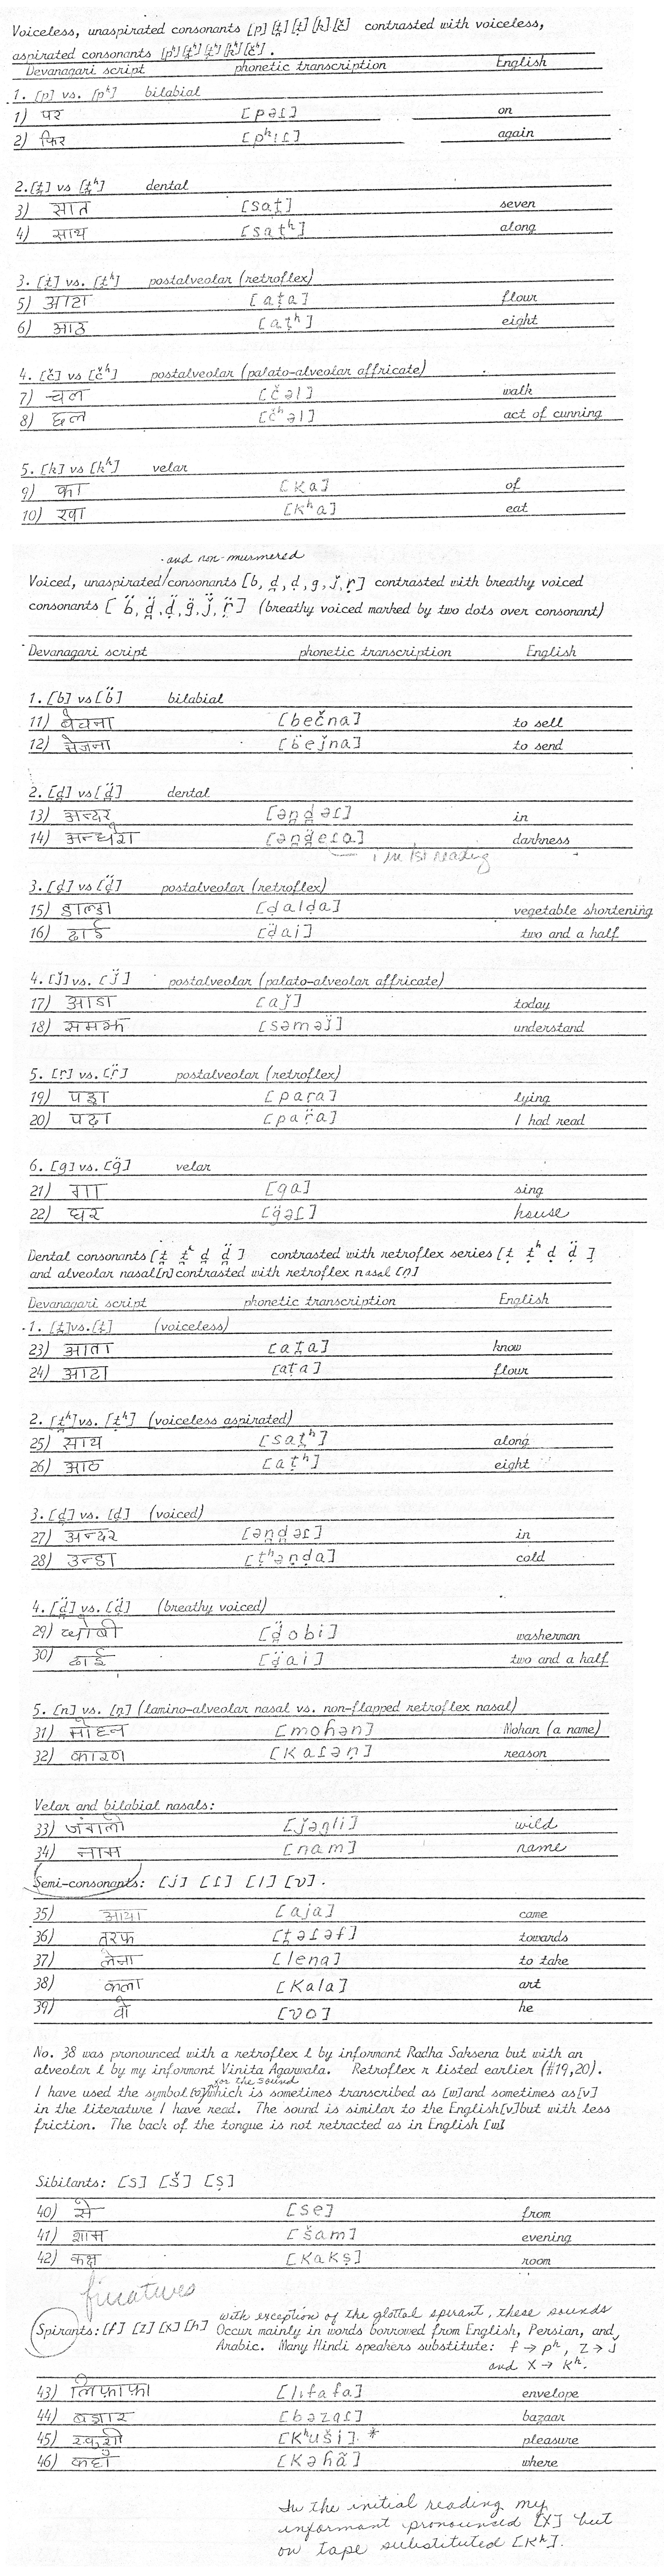 Voiceless, unaspirated consonants [p] [t̪] [ṭ] [k] [č] contrasted with voiceless,
aspirated consonants [pʰ] [t̪ʰ] [ṭʰ] [kʰ] [čʰ].
Devanagari script phonetic transcription English
1. [p] vs. [pʰ] bilabial
1) पर [pəɾ] on
2) फिर [pʰɪɾ] again
2. [t̪] vs [t̪ʰ] dental
3) सात [sat̪] seven
4) साथ [sat̪ʰ] along
3. [ṭ] vs. [ṭʰ] postalveolar (retroflex)
5) आटा [aṭa] flour
6) आठ [aṭʰ] eight
4. [č] vs [čʰ] postalveolar (palato-alveolar affricate)
7) चल [čəl] walk
8) छल [čʰəl] act of cunning
5. [k] vs [kʰ] velar
9) का [ka] of
10) खा [kʰa] eat
and non-murmered
Voiced, unaspirated/consonants [b, d̪, ḍ, g, ǰ, ṛ] contrasted with breathy voiced
consonants [b̈, d̪̈, ḍ̈, g̈, ǰ̈, ṛ̈] (breathy voiced marked by two dots over consonant)
Devanagari script phonetic transcription English
1. [b] vs [b̈] bilabial
11) बेचना [bečna] to sell
12) भेजना [b̈eǰna] to send
2. [d̪] vs [d̪̈] dental
13) अन्दर [ən̪d̪əɾ] in
14) अन्धेरा [ən̪d̪̈eɾa] darkness
i in 1st reading
3. [ḍ] vs [ḍ̈] postalveolar (retroflex)
15) डाल्डा [ḍalḍa] vegetable shortening
16) ढाई [ḍ̈ai] two and a half
4. [ǰ] vs. [ǰ̈] postalveolar (palato-alveolar affricate)
17) आज [aǰ] today
18) समझ [səməǰ̈] understand
5. [ṛ] vs. [ṛ̈] postalveolar (retroflex)
19) पड़ा [paṛa] lying
20) पढ़ा [paṛ̈a] I had read
6. [g] vs. [g̈] velar
21) गा [ga] sing
22) घर [g̈əɾ] house
Dental consonants [t̪ t̪ʰ d̪ d̪̈] contrasted with retroflex series [ṭ ṭʰ ḍ ḍ̈]
and alveolar nasal [n] contrasted with retroflex nasal [ṇ]
Devanagari script phonetic transcription English
1. [t̪] vs. [ṭ] (voiceless)
23) आता [at̪a] know
24) आटा [aṭa] flour
2. [t̪ʰ] vs. [ṭʰ] (voiceless aspirated)
25) साथ [sat̪ʰ] along
26) आठ [aṭʰ] eight
3. [d̪] vs. [ḍ] (voiced)
27) अन्दर [ən̪d̪əɾ] in
28) ठन्डा [ṭʰəṇḍa] cold
4. [d̪̈] vs. [ḍ̈] (breathy voiced)
29) धोबी [d̪̈obi] washerman
30) ढाई [ḍ̈ai] two and a half
5. [n] vs. [ṇ] (lamino-alveolar nasal vs. non-flapped retroflex nasal)
31) मोहन [mohən] Mohan (a name)
32) कारण [kaɾəṇ] reason
Velar and bilabial nasals:
33) जंगली [ǰəgli] wild
34) नाम [nam] name
Semi-consonants: [j] [ɾ] [l] [ʋ].
35) आया [aja] came
36) तरफ [t̪əɾəf] towards
37) लेना [lena] to take
38) कला [kala] art
39) वो [ʋo] he
No. 38 was pronounced with a retroflex l by informant Radha Saksena but with an
alveolar l by my informant Vinita Agarwala. Retroflex r listed earlier (#19,20).
for the sound
I have used the symbol [ʋ] which is sometimes transcribed as [w] and sometimes as [v]
in the literature I have read. The sound is similar to the English [v] but with less
friction. The back of the tongue is not retracted as in English [w]
Sibilants: [s] [š] [ṣ]
40) से [se] from
41) शाम [šam] evening
42) कक्ष [kakṣ] room
fricatives
Spirants: [f] [z] [x] [h] with exception of the glottal spirant, these sounds
Occur mainly in words borrowed from English, Persian, and
Arabic. Many Hindi speakers substitute: f → pʰ, z → ǰ
and x → kʰ.
43) लिफाफा [lɪfafa] envelope
44) बज़ार [bəzaɾ] bazaar
45) खुशी [kʰuši]. * pleasure
46) कहाँ [kəhã] where
In the initial reading my
informant pronounced [x] but
on tape substituted [kʰ].